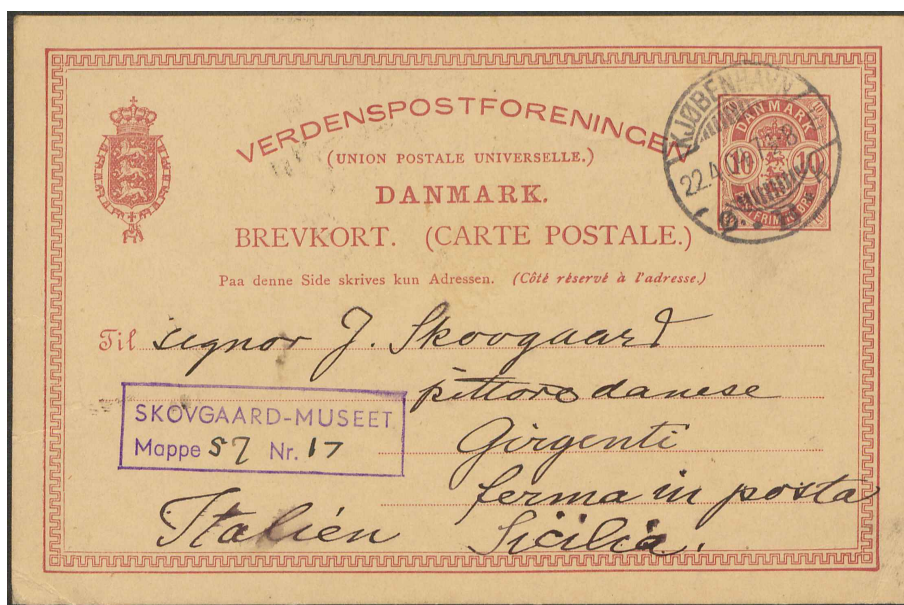 VERDENSPOSTFORENINGEN
(UNION POSTALE UNIVERSELLE.)
DANMARK.
BREVKORT. (CARTE POSTALE.)
Paa denne Side skrives kun Adressen. (Côté réservé à l'adresse.)
KJØBENHAVN
22.4.
DANMARK
10 10
Til signor J. Skovgaard
pittore danese
Girgenti
ferma in posta
Italién Sicilia.
SKOVGAARD-MUSEET
Mappe 57 Nr. 17